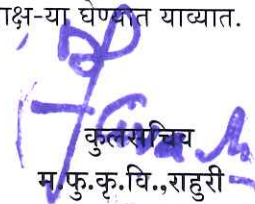 ाक्ष-या घेण्यात याव्यात.
कुलसचिव
म.फु.कृ.वि.,राहुरी